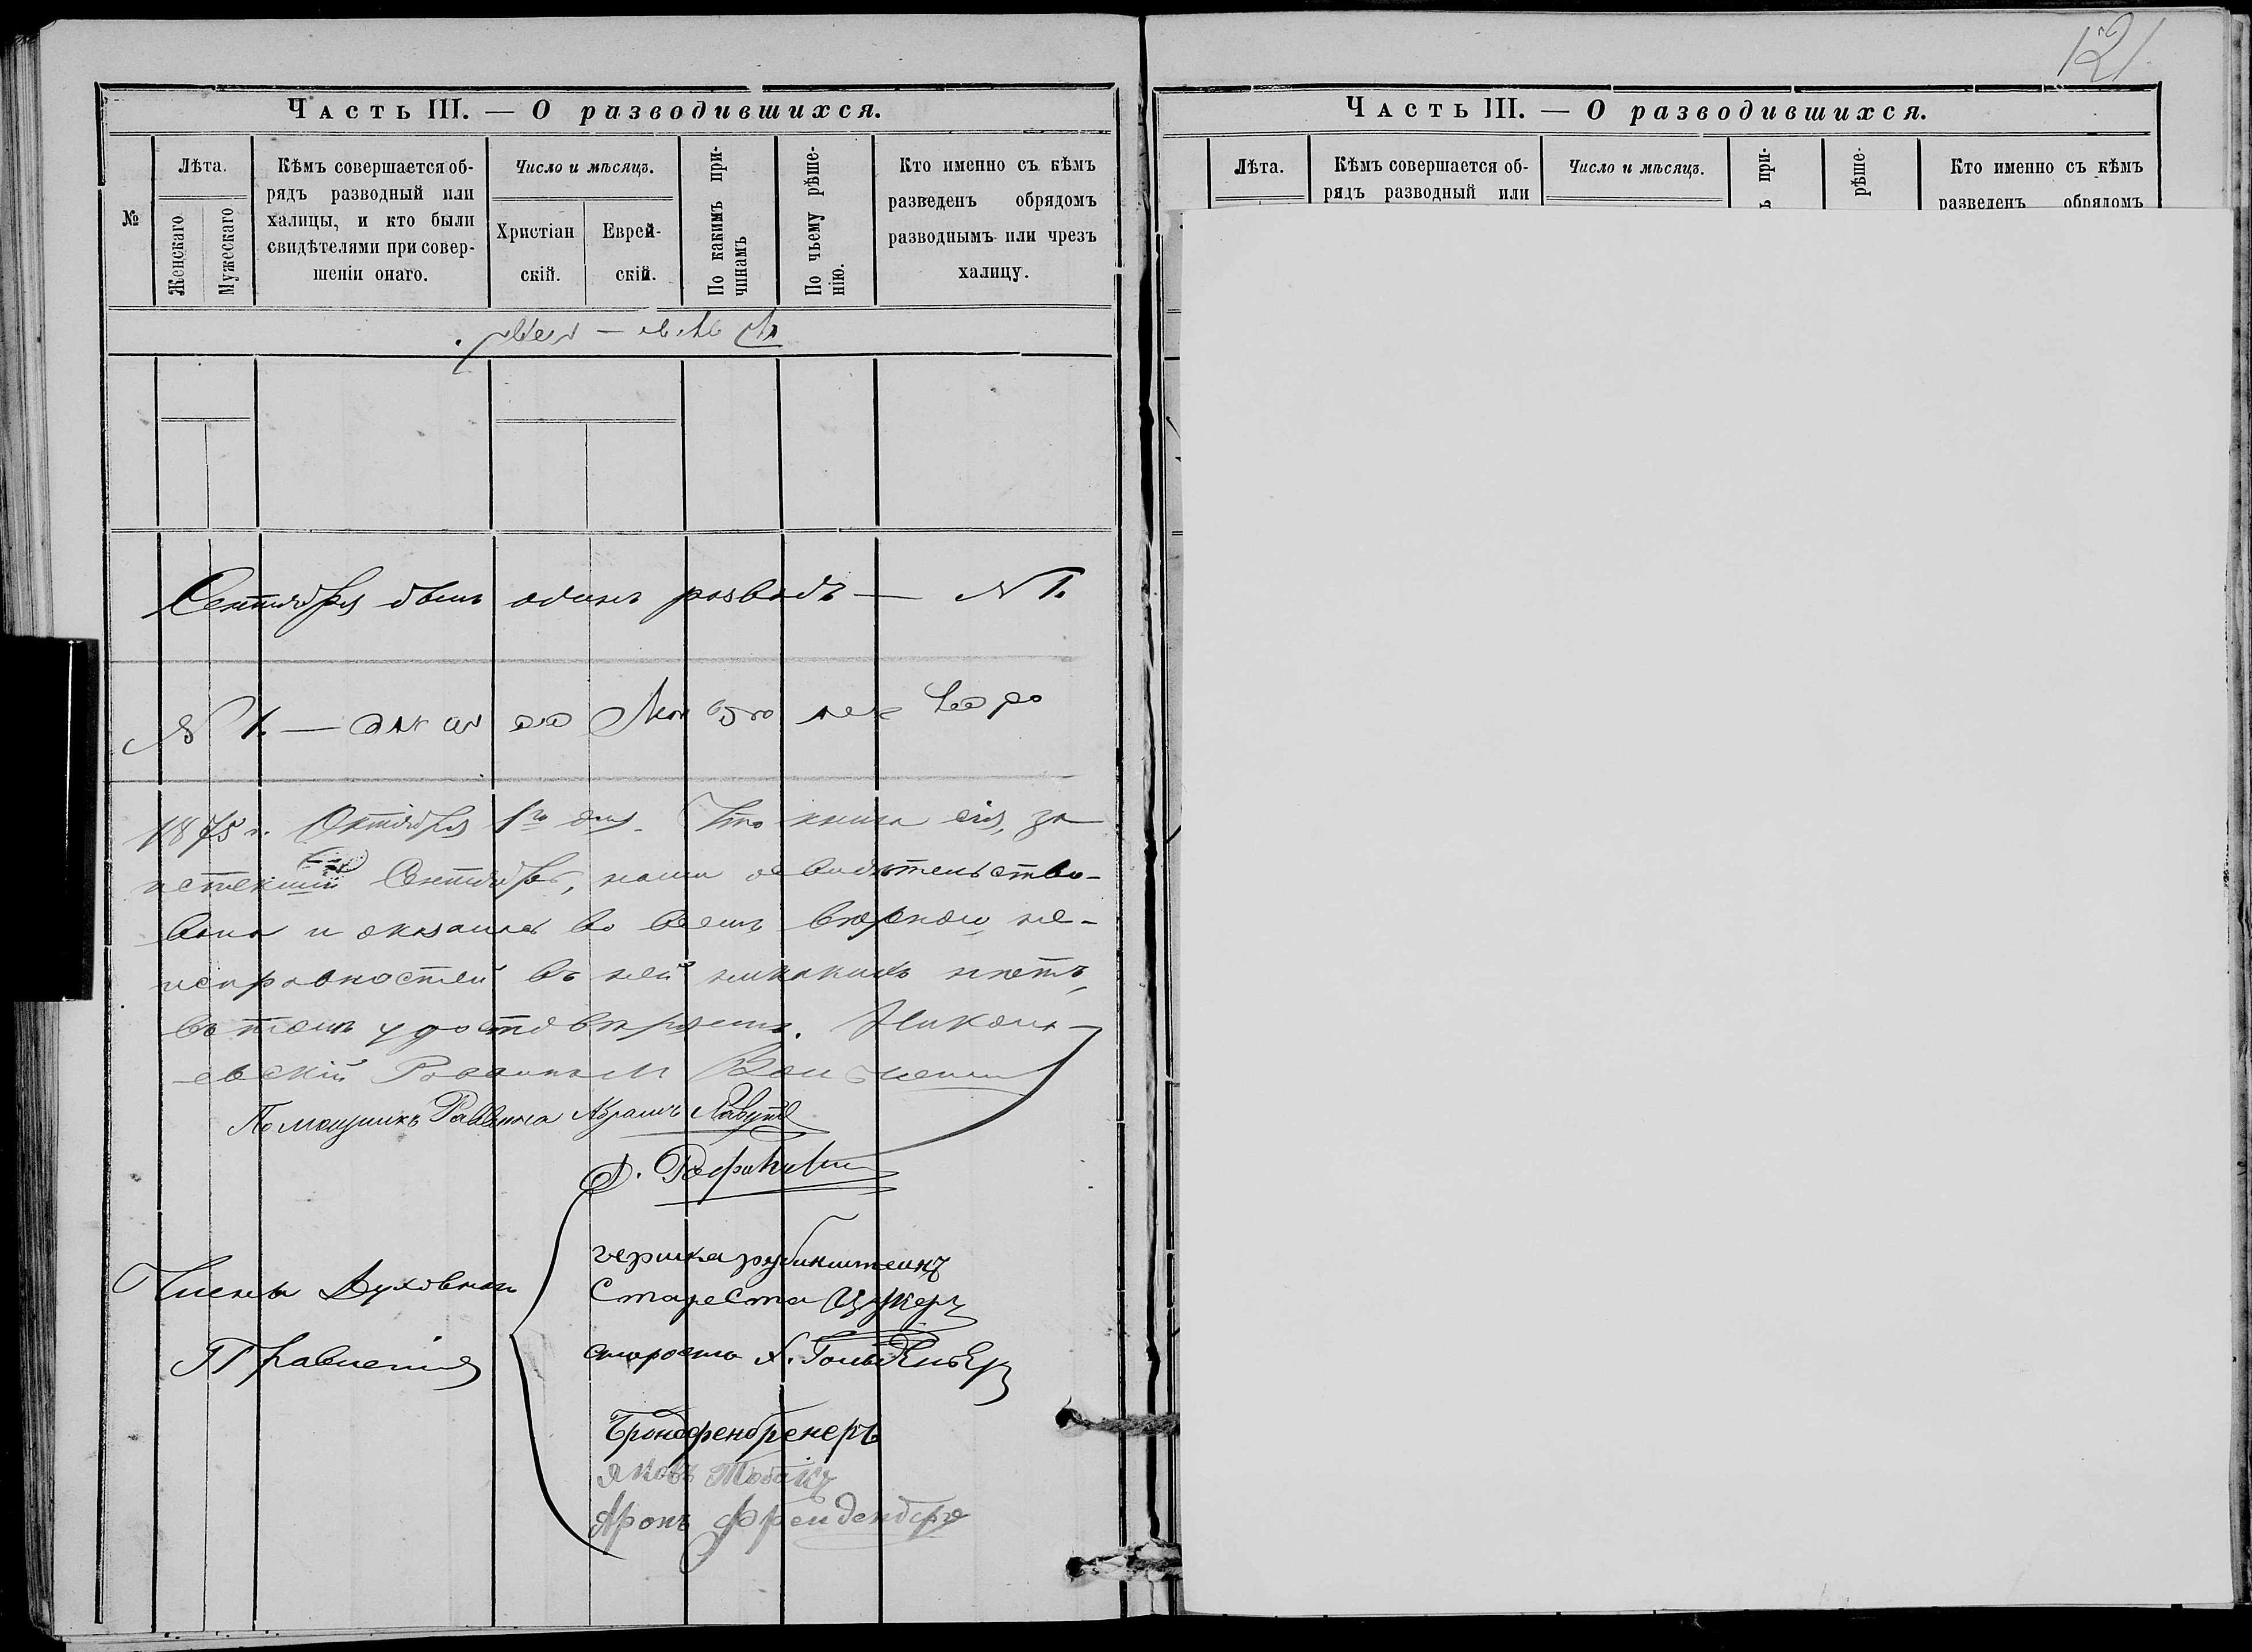 121
Часть III. — О разводившихся.
№
Лѣта.
Женскаго
Мужескаго
Кѣмъ совершается об-
рядъ разводный или
халицы, и кто были
свидѣтелями при совер-
шеніи онаго.
Число и мѣсяцъ.
Христіан
скій.
Еврей-
скій.
По какимъ при-
чинамъ
По чьему рѣше-
нію.
Кто именно съ кѣмъ
разведенъ обрядомъ
разводнымъ или чрезъ
халицу.
Сентября былъ одинъ розводъ — N 1.
N 1. —
1875 г. Октября 1го дня. Что книга сія, за
истекшій Сентябрь, нами освидѣтельство-
вана и оказалась во всемъ вѣрною, не-
исправностей въ ней никакихъ нѣтъ,
въ томъ удостовѣряемъ. Никола-
евскій Раввинъ М
Помощникъ Раввина Абрамъ
Члены Духовнаго
Правленія
гершка рубинштеинъ
Стареста Цукеръ
староста Х.
Бронфенбренеръ
Яковъ Тобакъ
Аронъ
Часть III. — О разводившихся.
Лѣта.
Кѣмъ совершается об-
рядъ разводный или
Число и мѣсяцъ.
при-
рѣше-
Кто именно съ кѣмъ
разведенъ обрядомъ